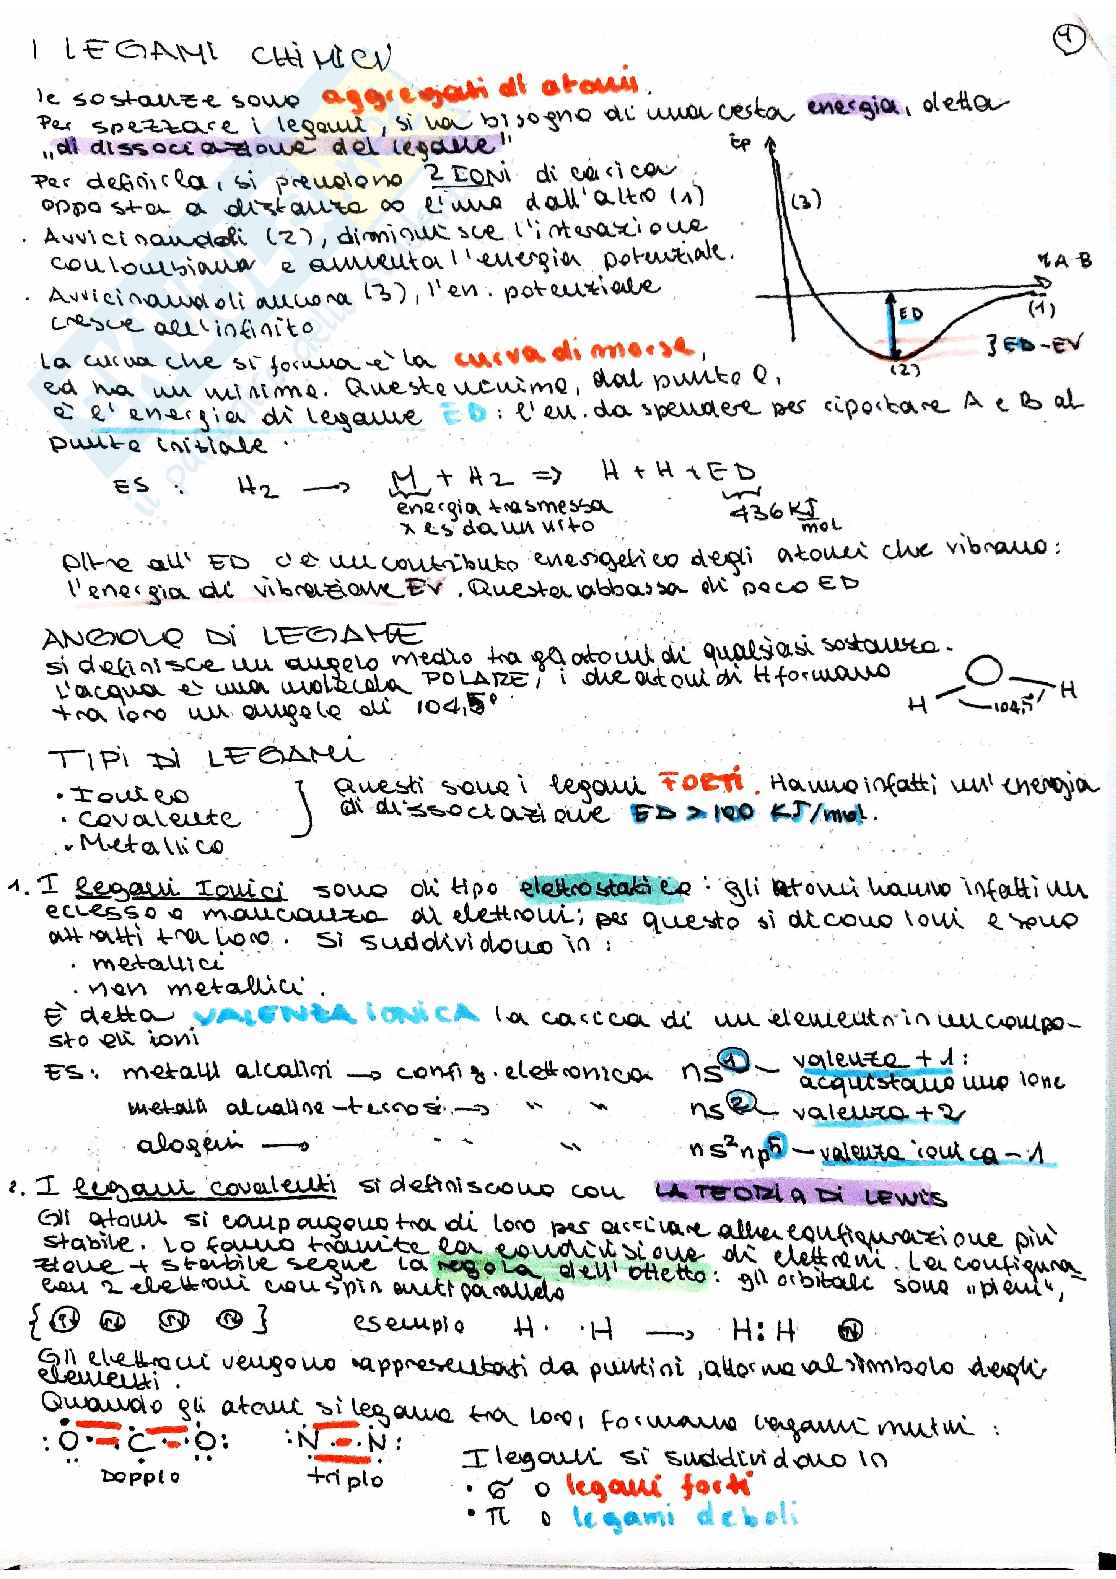 1
I LEGAMI CHIMICI
le sostanze sono aggregati di atomi.
Per spezzare i legami, si ha bisogno di una certa energia, detta
"di dissociazione del legame"
Per definirla, si prendono 2 IONI di carica
opposta a distanza ∞ l'uno dall'altro (1)
· Avvicinandoli (2), diminuisce l'interazione
coulombiana e aumenta l'energia potenziale.
· Avvicinandoli ancora (3), l'en. potenziale
cresce all'infinito
Ep
(3)
rAB
ED
(1)
}ED-EV
(2)
La curva che si forma è la curva di morse,
ed ha un minimo. Questo minimo, dal punto 0,
è l'energia di legame ED: l'en. da spendere per riportare A e B al
punto iniziale.
ES: H2 → M + H2 => H + H + ED
energia trasmessa
x es da un urto
436 KJ
mol
Oltre all' ED c'è un contributo energetico degli atomi che vibrano:
l'energia di vibrazione EV. Questa abbassa di poco ED
ANGOLO DI LEGAME
si definisce un angolo medio tra gli atomi di qualsiasi sostanza.
L'acqua è una molecola POLARE, i due atomi di H formano
tra loro un angolo di 104,5°
H 104,5° H
TIPI DI LEGAMI
· Ionico
· Covalente
· Metallico
Questi sono i legami FORTI. Hanno infatti un'energia
di dissociazione ED > 100 KJ/mol.
1. I legami Ionici sono di tipo elettrostatico: gli atomi hanno infatti un
eccesso o mancanza di elettroni; per questo si dicono ioni e sono
attratti tra loro. Si suddividono in:
· metallici
· non metallici.
È detta VALENZA IONICA la carica di un elemento in un compo-
sto di ioni
ES: metalli alcalini → config. elettronica ns1 - valenza +1:
acquistano uno ione
metalli alcalino-terrosi → " " ns2 - valenza +2
alogeni → " " ns2np5 - valenza ionica -1
2. I legami covalenti si definiscono con LA TEORIA DI LEWIS
Gli atomi si compongono tra di loro per arrivare alla configurazione più
stabile. Lo fanno tramite la condivisione di elettroni. La configura-
zione + stabile segue la regola dell'ottetto: gli orbitali sono "pieni",
con 2 elettroni con spin antiparallelo
{↑↓ ↑↓ ↑↓ ↑↓} esempio H· ·H → H:H ↑↓
Gli elettroni vengono rappresentati da puntini, attorno al simbolo degli
elementi.
Quando gli atomi si legano tra loro, formano legami multipli:
:O C O: :N N:
Doppio triplo
I legami si suddividono in
· σ o legami forti
· π o legami deboli